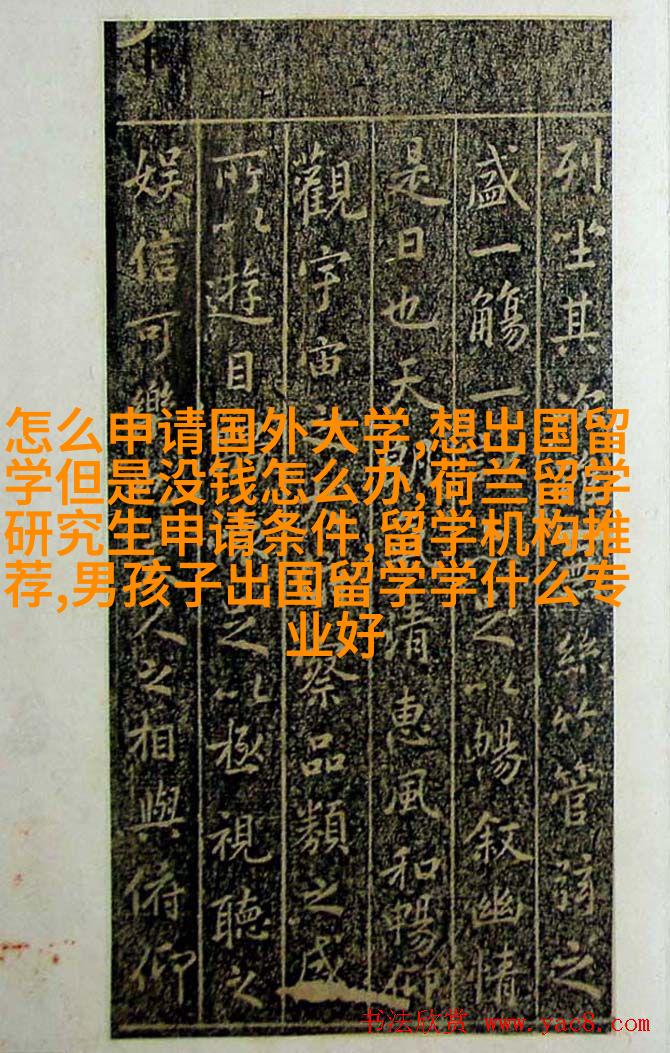 怎么申请国外大学,想出国留
学但是没钱怎么办,荷兰留学
研究生申请条件,留学机构推
荐,男孩子出国留学学什么专
业好
列坐其絲竹管弦之
盛一觴一之以暢叙幽情
是日也天朗清惠風和暢仰
觀宇宙之察品類之盛
所以遊目之以極視聽之
娱信可樂人之相與俯仰
书法欣赏 www.yac8.com